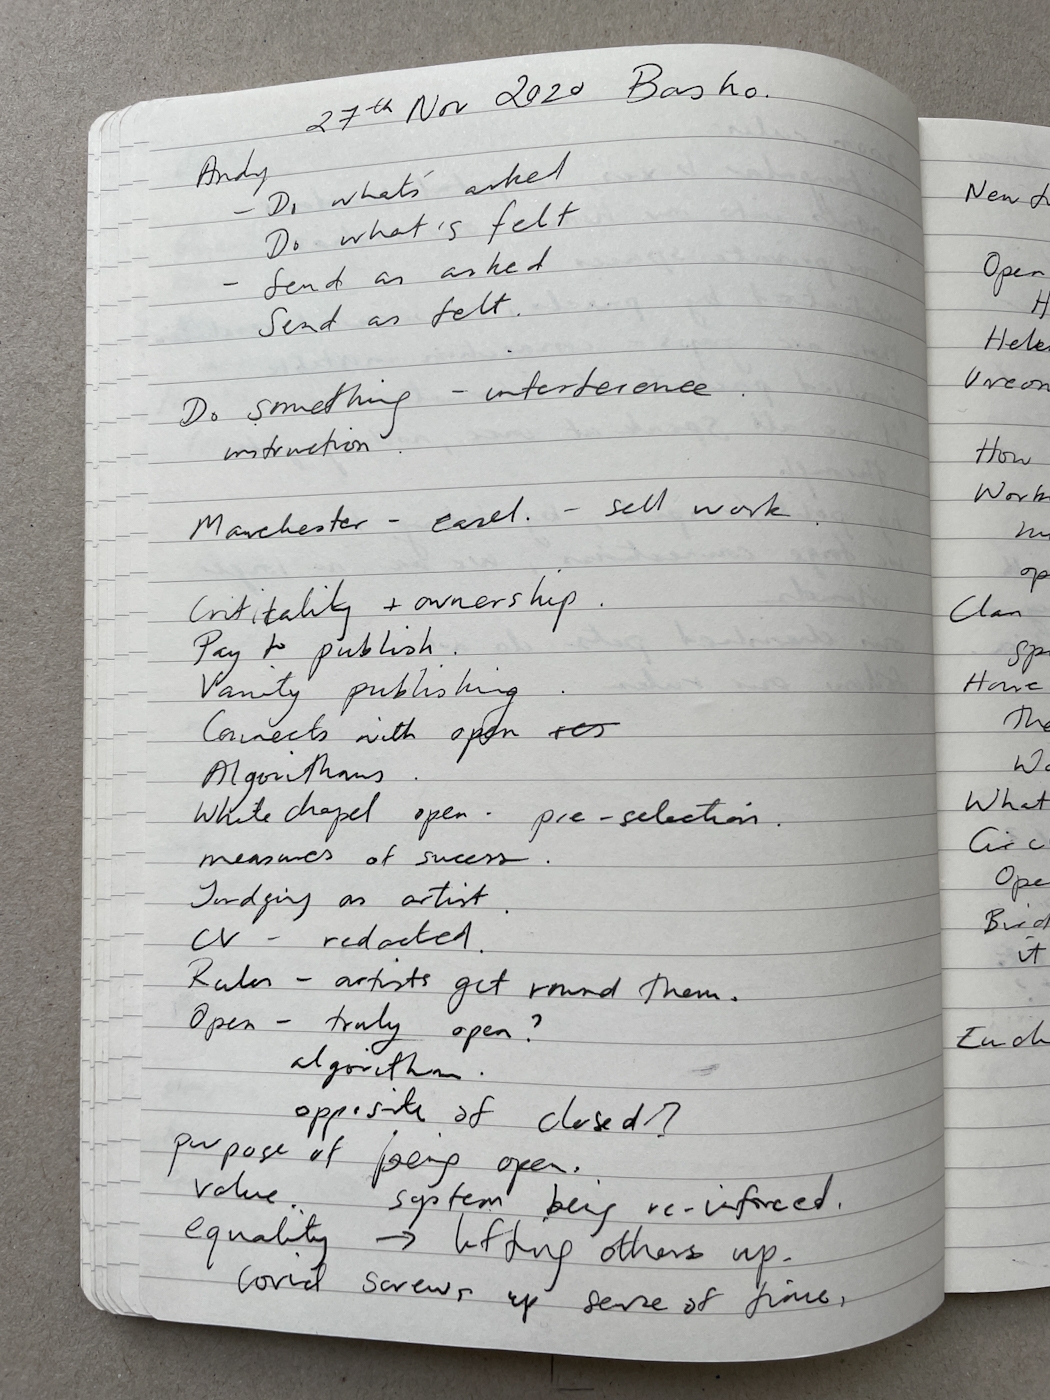 27th Nov 2020 Basho.
Andy
- Do what's asked
Do what's felt
- Send as asked
Send as felt.
Do something - interference.
instruction.
Manchester - easel. - sell work.
Crititality + ownership.
Pay to publish.
Vanity publishing.
Connects with open res
Algorithms.
Whitechapel open. pre-selection.
measures of sucess.
Judging as artist.
CV - redacted.
Rules - artists get round them.
Open - truly open?
algorithm.
opposite of closed?
purpose of being open.
value. system being re-inforced.
equality → lifting others up.
Covid screws up sense of time.
New
Open
H
Hele
How
Work
op
Clan
sp
Have
The
Wo
What
Circ
Ope
Bird
it